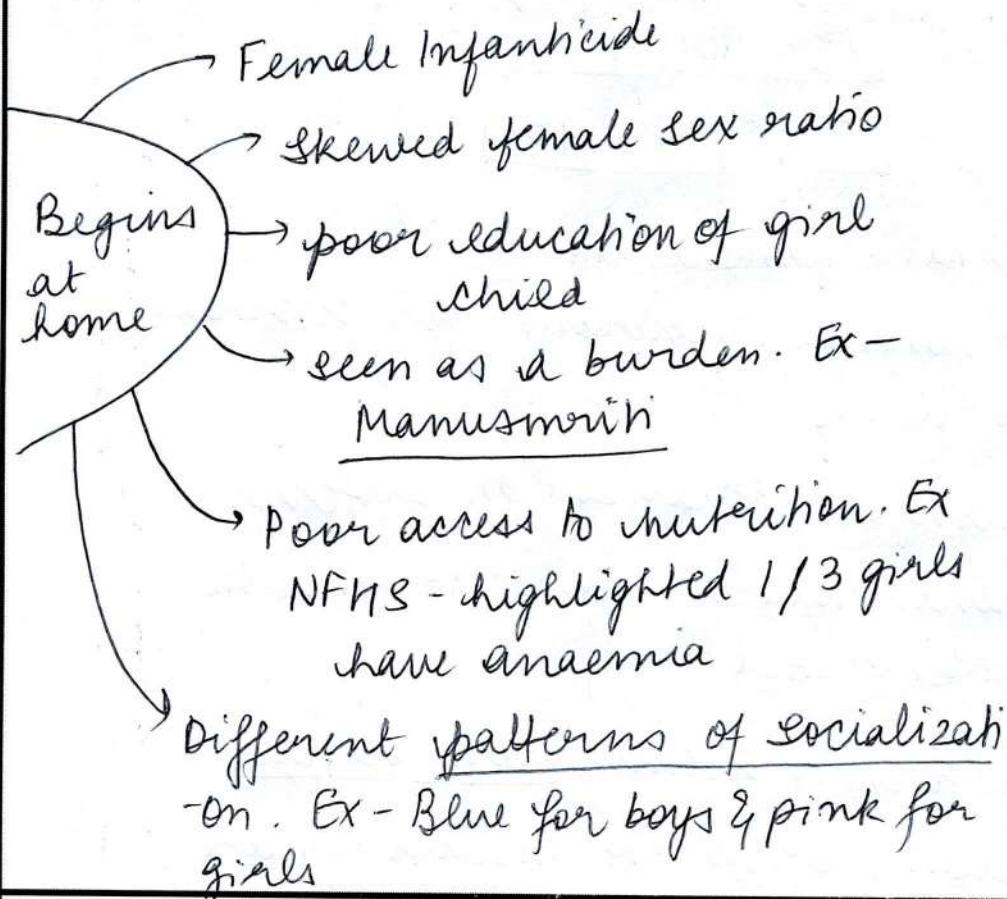 Female Infanticide
Skewed female sex ratio
Begins
at
home
poor education of girl
child
seen as a burden. Ex-
Manusmriti
Poor access to nutrition. Ex
NFHS - highlighted 1/3 girls
have anaemia
Different patterns of socializati
-on. Ex - Blue for boys & pink for
girls